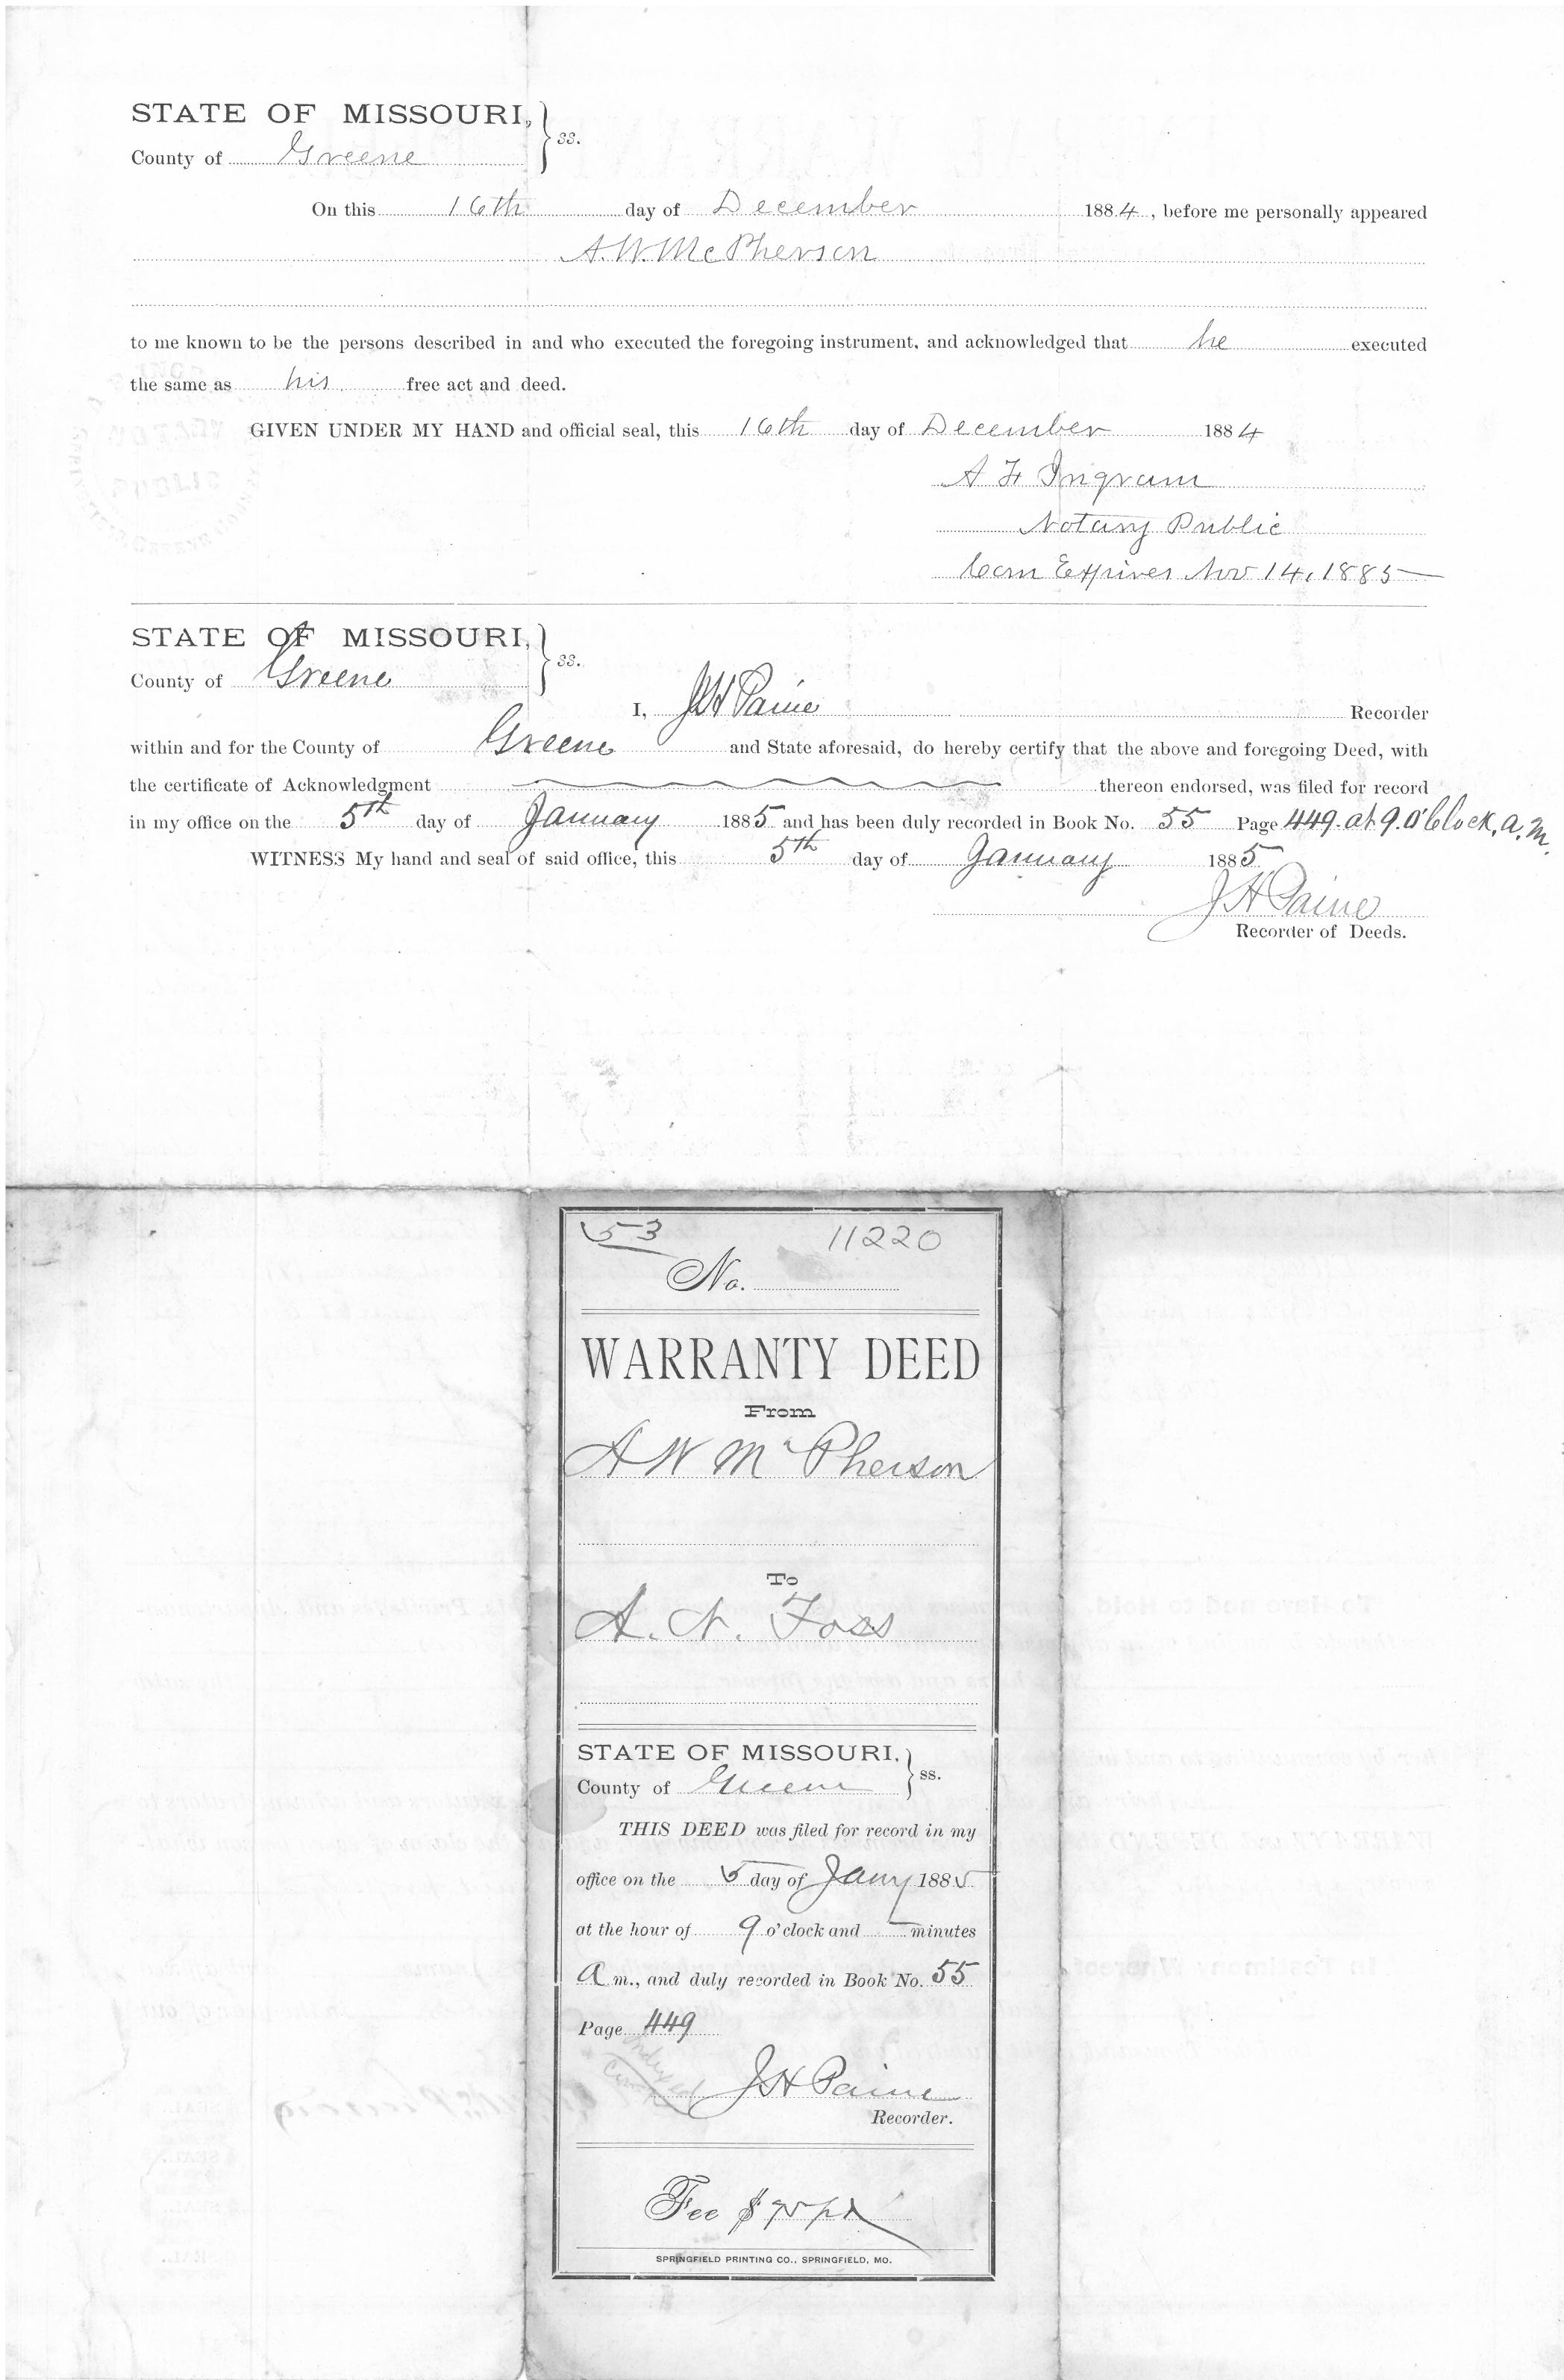 STATE OF MISSOURI, } ss.
County of Greene
On this 16th day of December 1884, before me personally appeared
A. W. McPherson
to me known to be the persons described in and who executed the foregoing instrument, and acknowledged that he executed
the same as his free act and deed.
GIVEN UNDER MY HAND and official seal, this 16th day of December 1884
A F Ingram
Notary Public
Com Expires Nov 14, 1885
NOTARY
PUBLIC
STATE OF MISSOURI, } ss.
County of Greene
I, J H Paine Recorder
within and for the County of Greene and State aforesaid, do hereby certify that the above and foregoing Deed, with
the certificate of Acknowledgment thereon endorsed, was filed for record
in my office on the 5th day of January 1885 and has been duly recorded in Book No. 55 Page 449. at 9. O'Clock, a.m.
WITNESS My hand and seal of said office, this 5th day of January 1885
J H Paine
Recorder of Deeds.
53 11220
No.
WARRANTY DEED
From
A W McPherson
To
A. N. Foss
STATE OF MISSOURI, } ss.
County of Greene
THIS DEED was filed for record in my
office on the 5 day of Jany 1885
at the hour of 9 o'clock and — minutes
A m., and duly recorded in Book No. 55
Page 449
J H Paine
Recorder.
Fee $ pd
SPRINGFIELD PRINTING CO., SPRINGFIELD, MO.